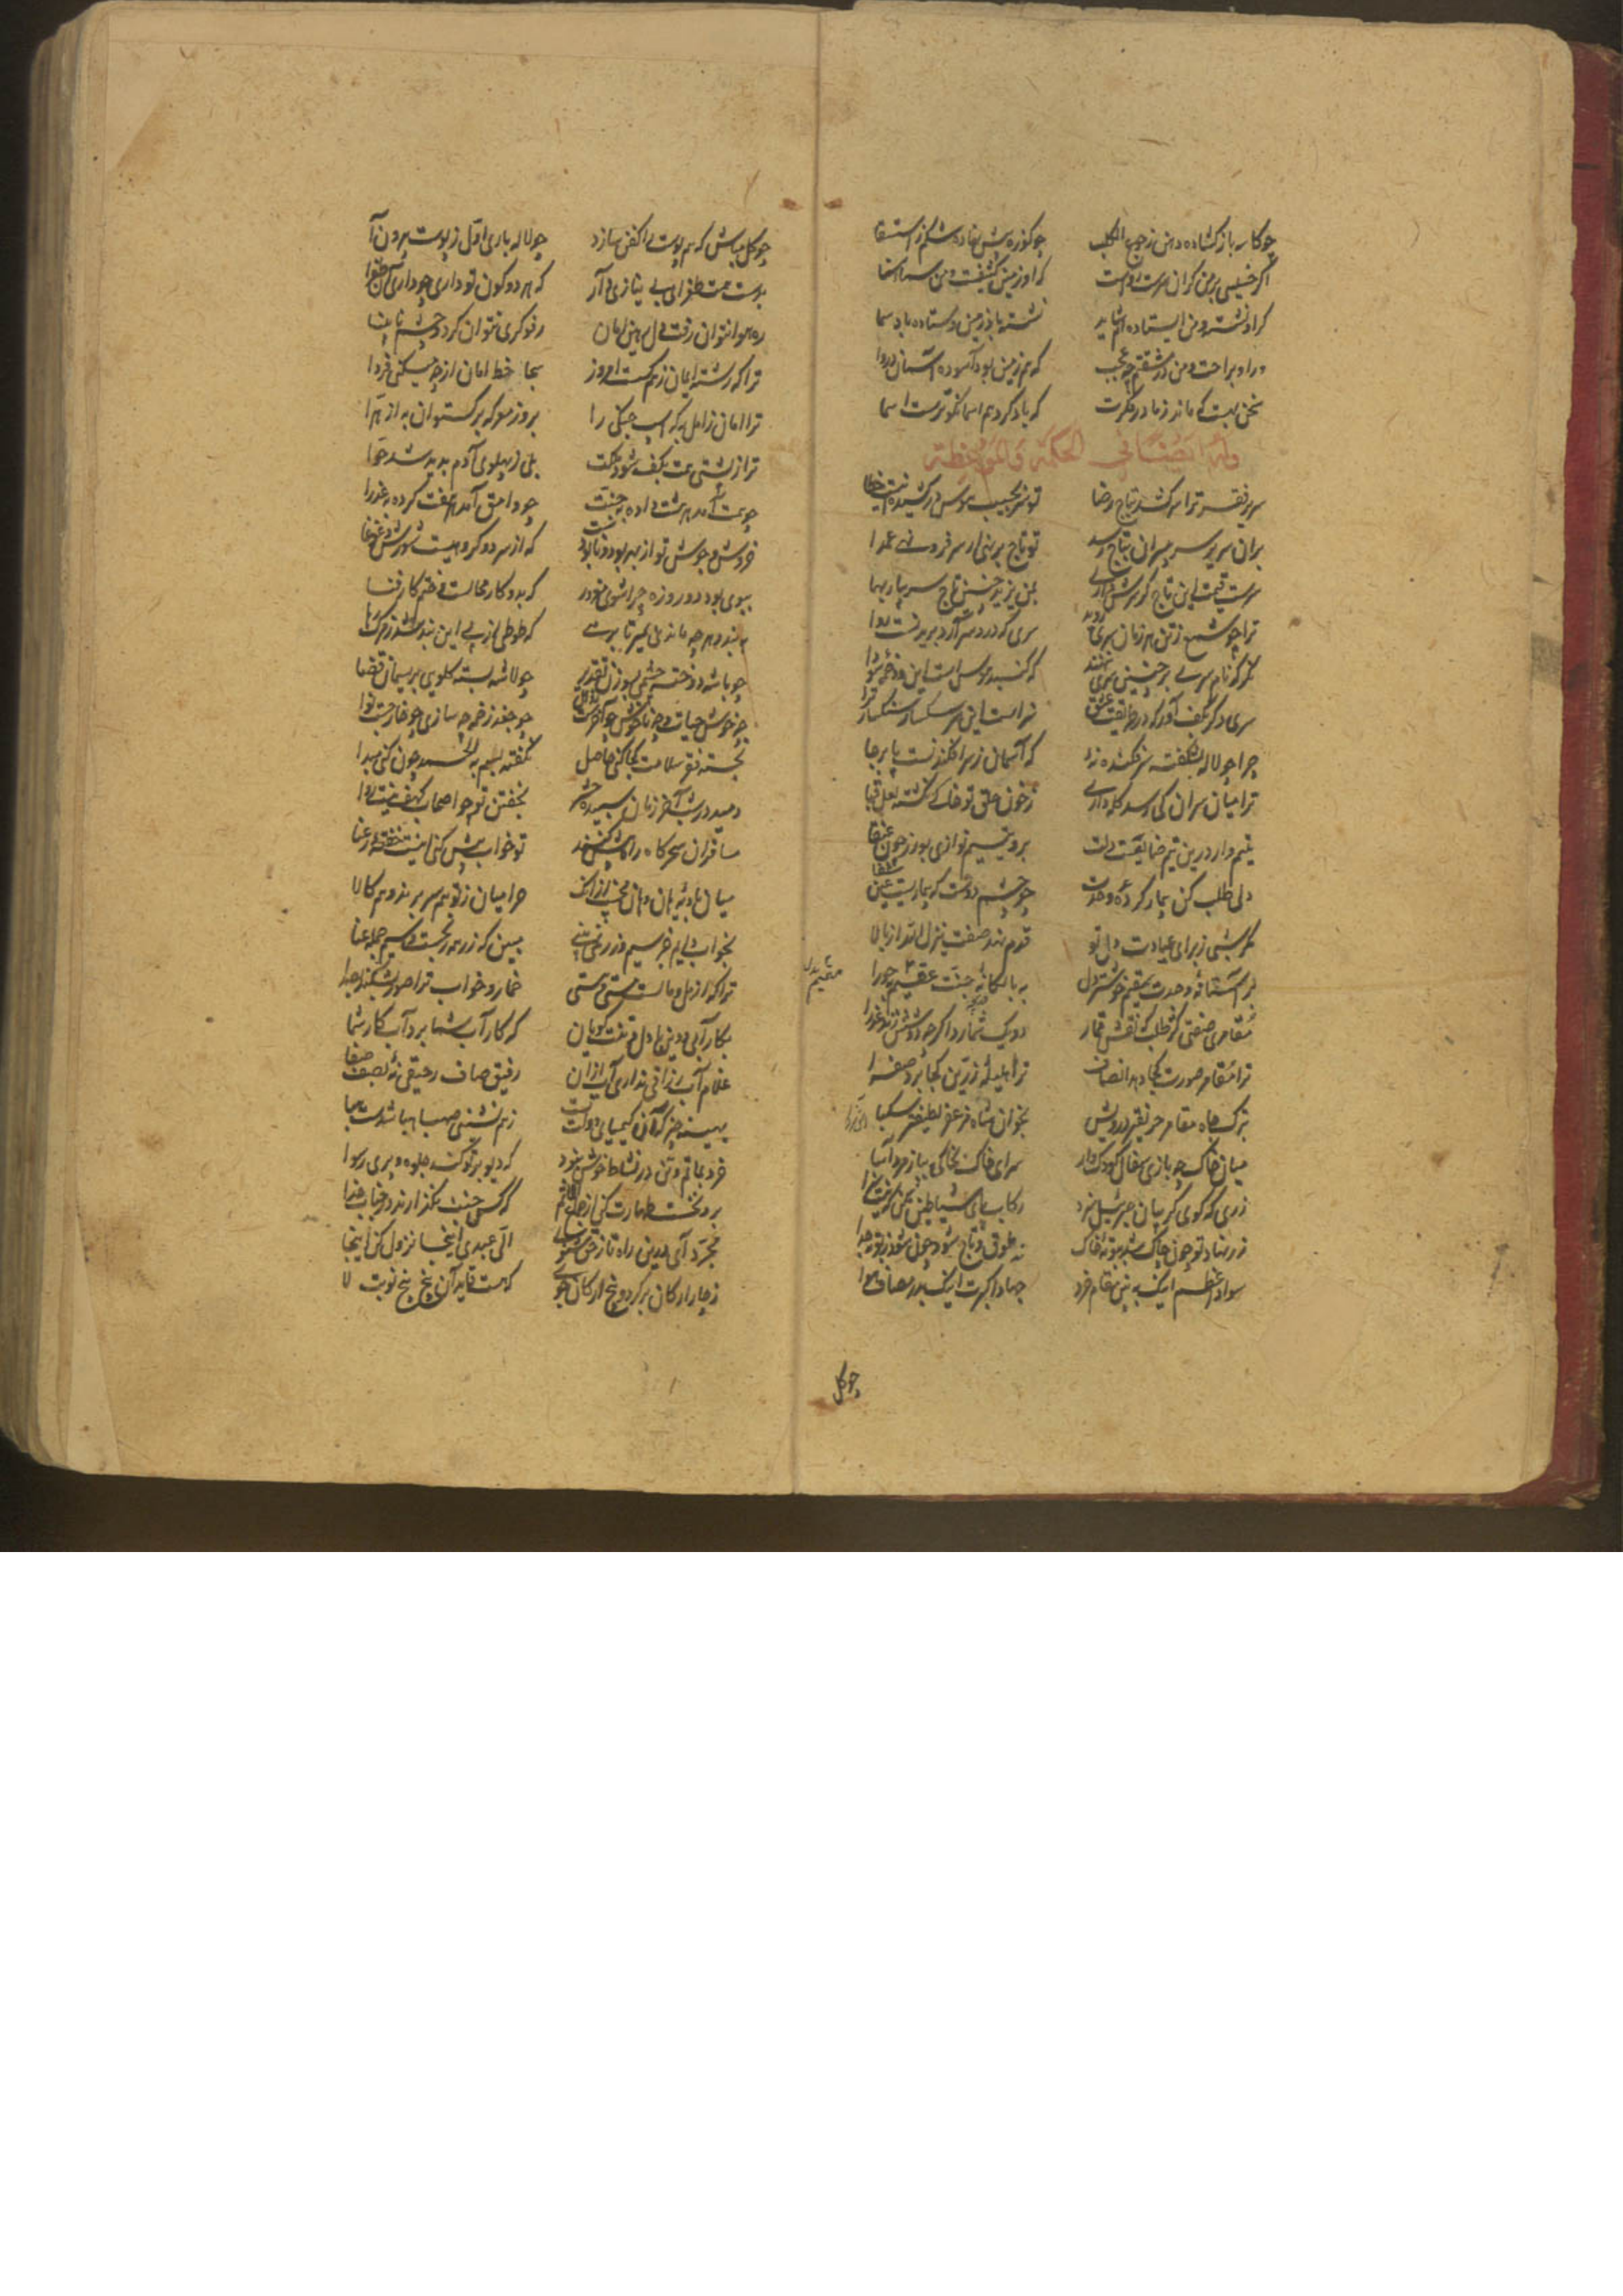 چو کاسه باز گشاده دهن ز جوع الکلب چو کوزه پیش نهاده شکم ز استسقا
اگر خسیس بر من گران سرست رواست که او زمین کثیفست و من سماء سنا
گر او نشسته و من ایستاده‌ام شاید نشسته باد زمین و ستاده باد سما
ور او براحت و من در مشقتم چه عجب که هم زمین بود آسوده و آسمان دروا
سخن بهست که ماند ز مادر فکرت که یاد کرد هم اسما نکوترست اسما
وله ایضا فی الحکمة والموعظة
سریر فقر ترا سر کشد بتاج رضا تو سر بجیب هوس در کشیده اینت خطا
بران سریر سر بی سران بتاج رسد تو تاج بر نهی ار سر فرو نهی عمدا
سرست قیمت این تاج گر سرش داری بمن یزید چنین تاج سر بیار بها
ترا چو شمع ز تن هر زمان سری روید سری که درد سر آرد بریدنست روا
نگر که نام سری بر چنین سری ننهند که گنبد هوس است این و دخمه سودا
سری دگر بکف آور که در طریقت عشق سزاست این سر سگسار سنگسار ترا
چرا چو لاله نشکفته سرفکنده نه‌ای که آسمان ز سرافکندنست پابرجا
ترا میان سران کی رسد کله‌داری ز خون حلق تو خاک نگشته لعل قبا
یتیم‌وار درین تیم ضایعست دلت برو یتیم نوازی بورز چون عنقا
دلی طلب کن بیمار کرده وحدت چو چشم دوست که بیماریست عین شفا
مگر شبی ز برای عیادت دل تو قدم نهد صفت ینزل الله از بالا
بر آستانه وحدت سقیم خوشتر دل به بالکانه جنت عقیم به حورا
مقیم بدل
مقامری صفتی کن طلب که نقش قمار دو یک شمارد اگر چه دو شش زند عذرا
ترا مقامر صورت کجا دهد انصاف ترا هلیله زرین کجا برد صفرا
بترک جاه مقامر ظریفتر درویش بخوان شاه مزعفر لطیفتر سکبا
میان خاک چه بازی سفال کودک‌وار سرای خاک بخاکی بباز مرد آسا
زری که گوی گریبان جبرئیل سزد رکاب پای شیاطین مکن که نیست سزا
ز رنهاد تو چون پاک شد ببوته خاک نه طوق و تاج شود چون شود ز بوته جدا
سواد اعظم اینک ببین مقام خرد جهاد اکبر اینک بدر مصاف هوا
چو گل
چو گل مباش که هم پوست را کفن سازد چو لاله باری اول ز پوست بیرون آ
بدست همت طغرای بی نیازی دار که هر دو کون تو داری چو داری آن طغرا
ره هوا نتوان رفت و دل رهین امان رفوگری نتوان کرد و چشم نابینا
ترا که رشته ایمان ز هم گسست امروز سحا خط امان از چه میکنی فردا
ترا امان ز امل به که اسب جنگی را بروز معرکه برگستوان به از هرا
ترا ز پشتی همت بکف شود ملکت بلی ز پهلوی آدم پدید شد حوا
چو همت آمد هر هشت داده به جنت چو وامق آمد هر هفت کرده به عذرا
خروش و جوش تو از بهر بود و نابودست که از سر دو گروهیست شورش و غوغا
ببوی بود دو روزه چرا شوی مغرور که بدو کار محالست و ختم کار فنا
ببند و هر چه ماند بمان بمیر تا برهی که طوطی از پی این بند شد ز مرگ رها
چو باشه دوخته چشمی بسوزن تقدیر چو لاشه بسته گلویی بریسمان قضا
چو خوشی حیات و چه ناخوش چو آخرست زوال چو جغد زخمه چه سازی چو خارجست نوا
نجسته فقر سلامت کجا کنی حاصل نگفته بسم به الحمد چون کنی مبدا
دمید در شب آخر زمان سپیده حشر بخفتن تو چو اصحاب کهف نیست روا
مسافران سحرگاه راه پیش کنند تو خواب بیش کنی اینت خفته رعنا
میان بادیه‌ای هان و هان مخسب ار زانک حرامیان ز تو هم سر برند و هم کالا
بخواب دایم جز سیم و زر نمی‌بینی ببین که زر همه رنجست و سیم جمله عنا
ترا که از مل و مالست مستی و هستی خمار و خواب ترا صور بشکند بصدا
بکار آبی و دین با دل و تنت گویان که کار آب شما برد آب کار شما
غلام آب رزانی نداری آب از آن رفیق صاف رحیقی نه‌ای بصف صفا
بهینه چیز که آن کیمیای دولتست ز هم‌نشینی صهبا هبا شدست هبا
خرد بماتم و تن در نشاط خوش نبود که دیو برتو کند جلوه و پری رسوا
برو نخست طهارت کن از جماع الاثم که کس جنب نگذارند در جناب خدا
مجرد آی درین راه تا ز حق شنوی الی عبدی اینجا نزول کن اینجا
ز چار ارکان برگرد و پنج ارکان جوی که هست قاید آن پنج پنج نوبت لا